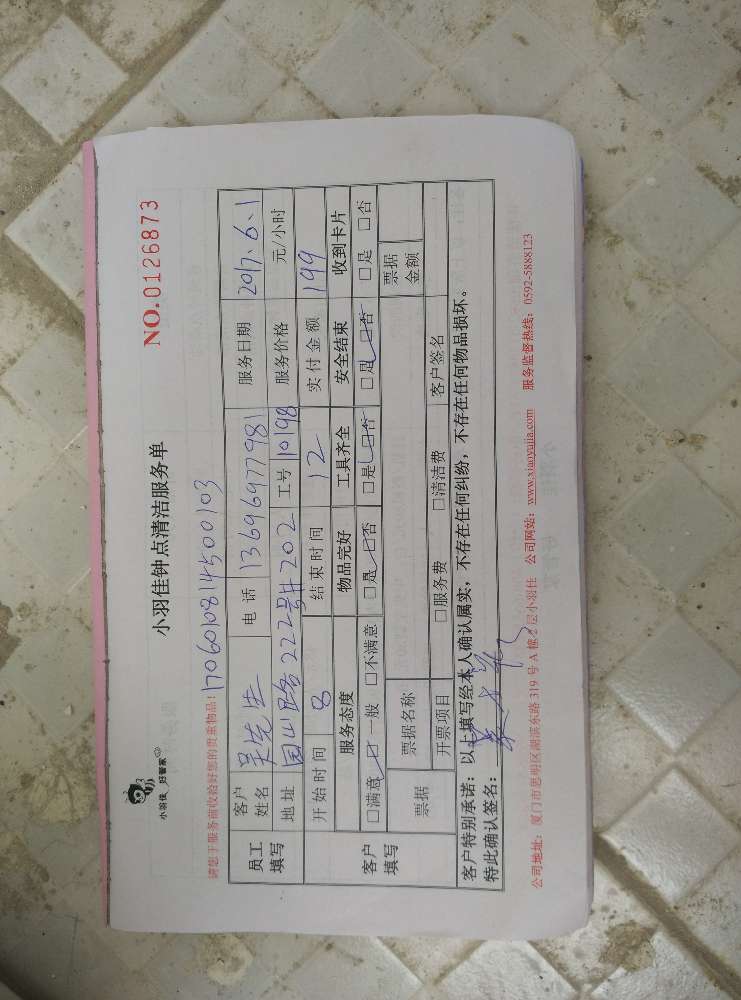 小羽佳 好管家
小羽佳钟点清洁服务单
NO.0126873
请您于服务前收拾好您的贵重物品!
1706010814500103
员工填写 客户姓名 吴先生 电话 13696977981 服务日期 2017.6.1
地址 222号 202 工号 10198 服务价格 元/小时
开始时间 8 结束时间 12 实付金额 199
客户填写 服务态度 物品完好 工具齐全 安全结束 收到卡片
□满意 □一般 □不满意 □是 □否 □是 □否 □是 □否 □是 □否
票据 票据名称 票据金额
开票项目 □服务费 □清洁费 客户签名
客户特别承诺:以上填写经本人确认属实,不存在任何纠纷,不存在任何物品损坏。
特此确认签名:
公司地址:厦门市思明区湖滨东路 319 号 A 幢 2 层小羽佳 公司网站:www.xiaoyujia.com 服务监督热线:0592-5888123